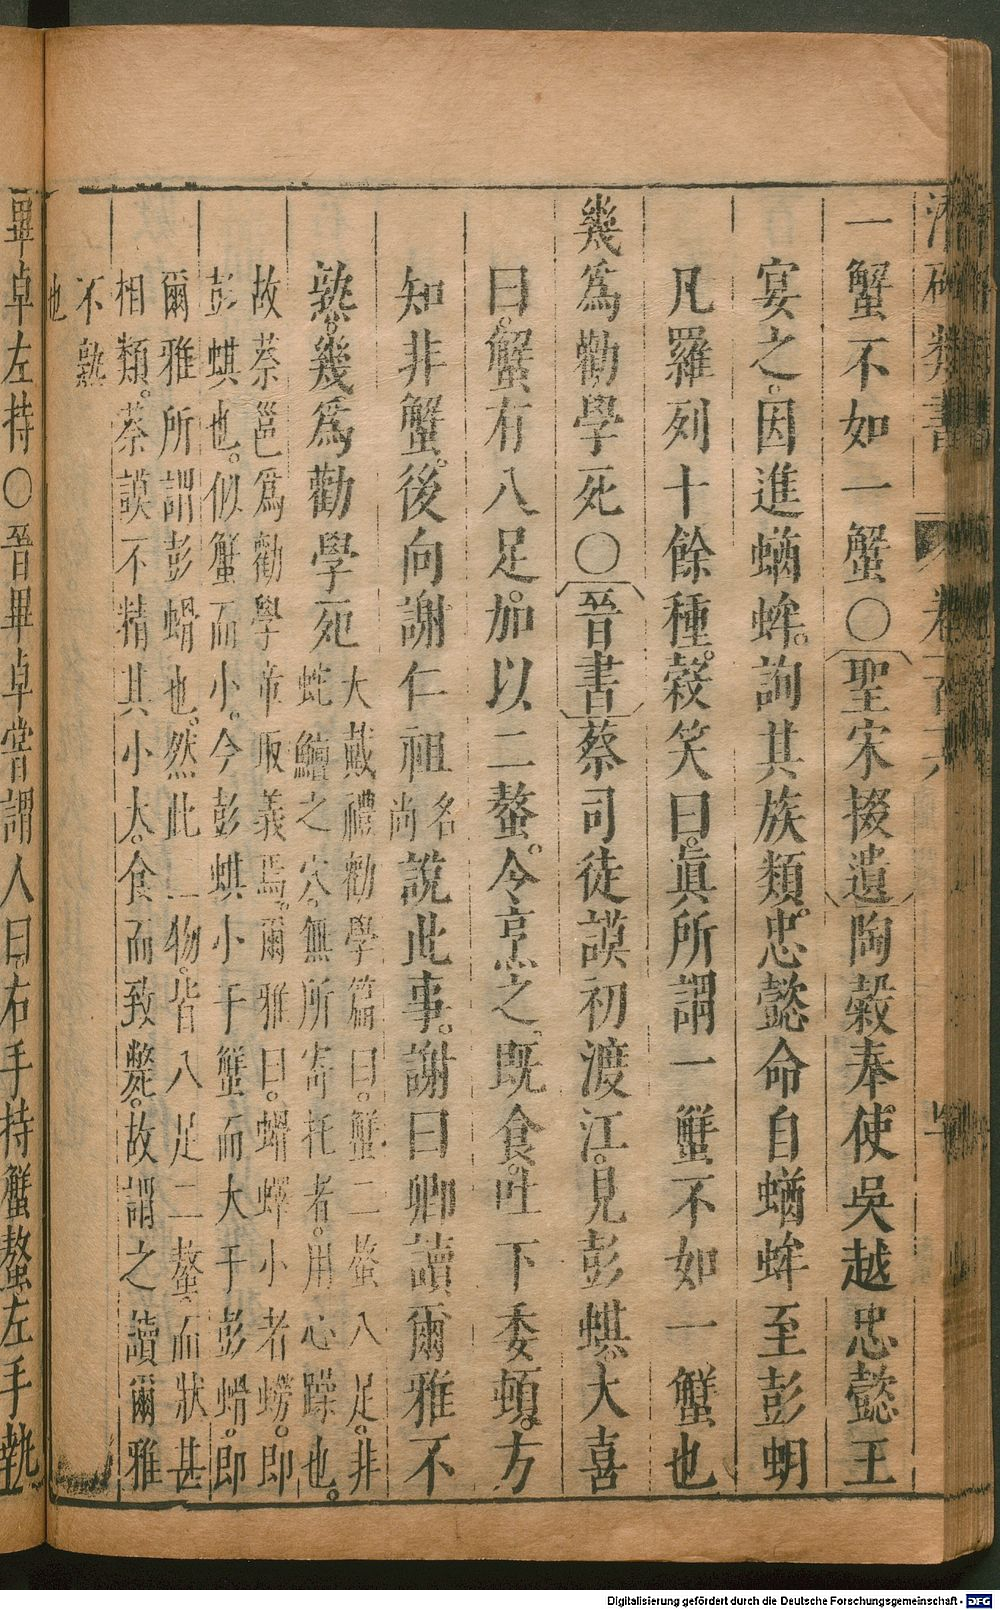 一蟹不如一蟹○聖宋掇遺陶糓奉使吳越忠懿王
宴之。因進蝤蛑。詢其族類。忠懿命自蝤蛑至彭蚏
凡羅列十餘種。糓笑曰。眞所謂一蟹不如一蟹也
幾爲勸學死○晉書蔡司徒謨初渡江。見彭蜞。大喜
曰。蟹有八足。加以二螯。令烹之。既食。吐下委頓。方
知非蟹。後向謝仁祖名尚說此事。謝曰卿讀爾雅不
熟。幾爲勸學死大戴禮勸學篇曰。蟹二螯八足。非
蛇鱣之穴。無所寄托者。用心躁也。
故蔡邕爲勸學章取義焉。爾雅曰。螖蠌小者蟧。即
彭蜞也。似蟹而小。今彭蜞小于蟹而大于彭螖。即
爾雅所謂彭螖也。然此二物。皆八足二螯。而狀甚
相類。蔡謨不精其小大。食而致斃。故謂之讀爾雅
不熟
也
畢卓左持○晉畢卓嘗謂人曰。右手持蟹螯左手執
Digitalisierung gefördert durch die Deutsche Forschungsgemeinschaft - DFG